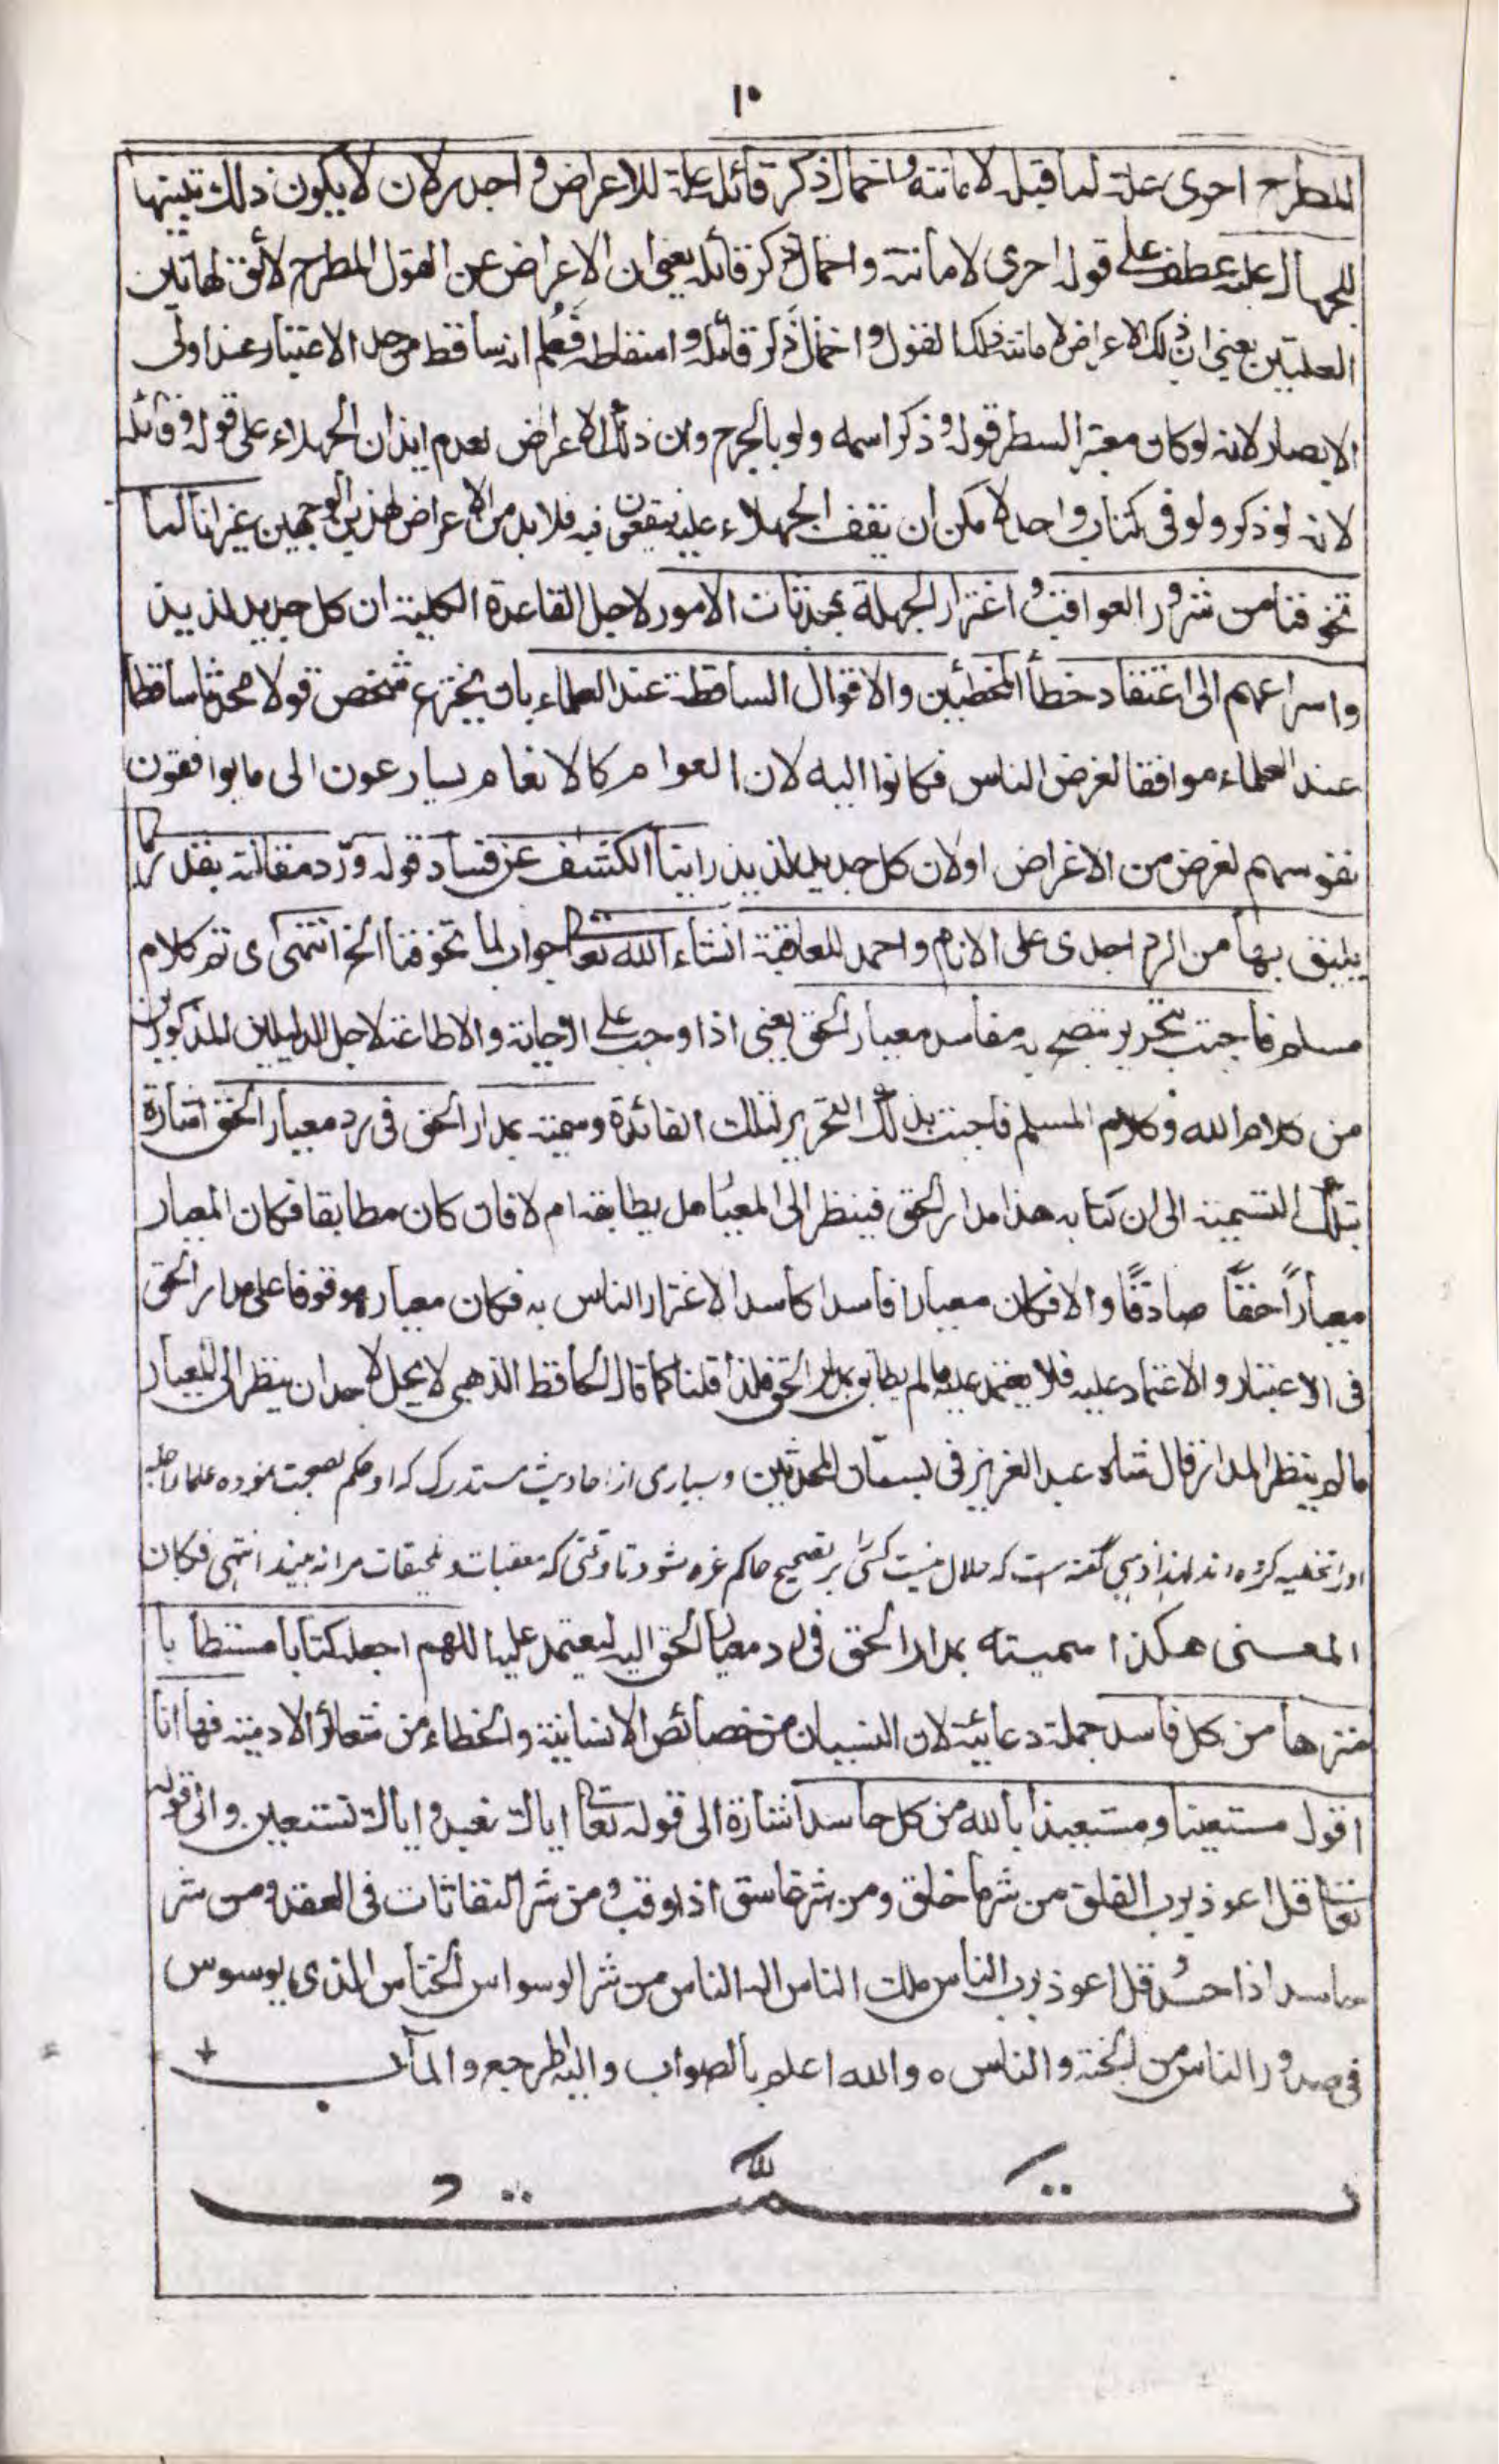 ١٠
المطرح احرى علة لما قبله لاماتته واخمال ذكر قائله علة للاعراض واجدر لان لا يكون ذلك تنبيها
للجهال عليه عطف على قوله احرى لاماتته واخمال ذكر قائله يعني ان الاعراض عن القول المطرح لائق لهاتين
العلتين يعني ان ذلك الاعراض لاماتته ذلك القول واخمال ذكر قائله و فعلم انه ساقط من حد الاعتبار عند اولى
الابصار لانه لو كان معتبرا لسطر قوله وذكر اسمه ولو بالجرح وان ذلك الاعراض لعدم ايذان الجهلاء على قوله وقائله
لانه لو ذكر ولو في كتاب واحد لامكن ان يقف الجهلاء عليه فيقعون فيه فلا بد من الاعراض لهذين الوجهين غير انا لما
تخوفنا من شرور العواقب واغترار الجهلة بمحدثات الامور لاجل القاعدة الكلية ان كل جديد لذيذ
واسراعهم الى اعتقاد خطأ المخطئين والاقوال الساقطة عند العلماء بان يخترع شخص قولا محدثا ساقطا
عند العلماء موافقا لغرض الناس فكانوا اليه لان العوام كالانعام يسارعون الى ما يوافقون
نفوسهم لغرض من الاغراض او لان كل جديد لذيذ راينا الكشف عن فساد قوله ورد مقالته بقدر ما
يليق بها من الرد اجدى على الانام واحمد للعاقبة انشاء الله تعالى جواب لما تخوفنا الخ انتهى اى تم كلام
مسلم فاجبت بتحرير يتضح به مفاسد معيار الحق يعني اذا وجب على الاجابة والاطاعة لاجل الدليلين المذكورين
من كلام الله وكلام المسلم فاجبت بذلك التحرير لتلك الفائدة وسميته بمدار الحق في رد معيار الحق اشارة
بتلك التسمية الى ان كتابه هذا مدار الحق فينظر الى المعيار هل يطابقه ام لا فان كان مطابقا فكان المعيار
معيارا حقا صادقا والا فكان معيارا فاسدا كاسدا لاغترار الناس به فكان معياره موقوفا على مدار الحق
في الاعتبار والاعتماد عليه فلا يعتمد عليه ما لم يطابق بمدار الحق فلذا قلنا كما قال الحافظ الذهبي لا يحل لاحد ان ينظر الى المعيار
ما لم ينظر المدار قال شاه عبد العزيز في بستان المحدثين وبسيارى از احاديث مستدرك كه او حكم بصحت نموده علماء اجله
او را تخطيه كرده اند لهذا ذهبى گفته است كه حلال نيست كسى را بر تصحيح حاكم غره شود تا وقتى كه تعقبات و تلحيقات مرا نه بيند انتهى فكان
المعنى هكذا سميته بمدار الحق في رد معيار الحق اليه ليعتمد عليه اللهم اجعله كتابا مستطابا
منزها من كل فاسد جملة دعائية لان النسيان من خصائص الانسانية والخطاء من شعائر الادمية فها انا
اقول مستعينا ومستعيذا بالله من كل حاسد اشارة الى قوله تعالى اياك نعبد واياك نستعين والى قوله
تعالى قل اعوذ برب الفلق من شر ما خلق ومن شر غاسق اذا وقب ومن شر النفاثات في العقد ومن شر
حاسد اذا حسد قل اعوذ برب الناس ملك الناس اله الناس من شر الوسواس الخناس الذى يوسوس
في صدور الناس من الجنة والناس ٥ والله اعلم بالصواب واليه المرجع والمآب
تمت